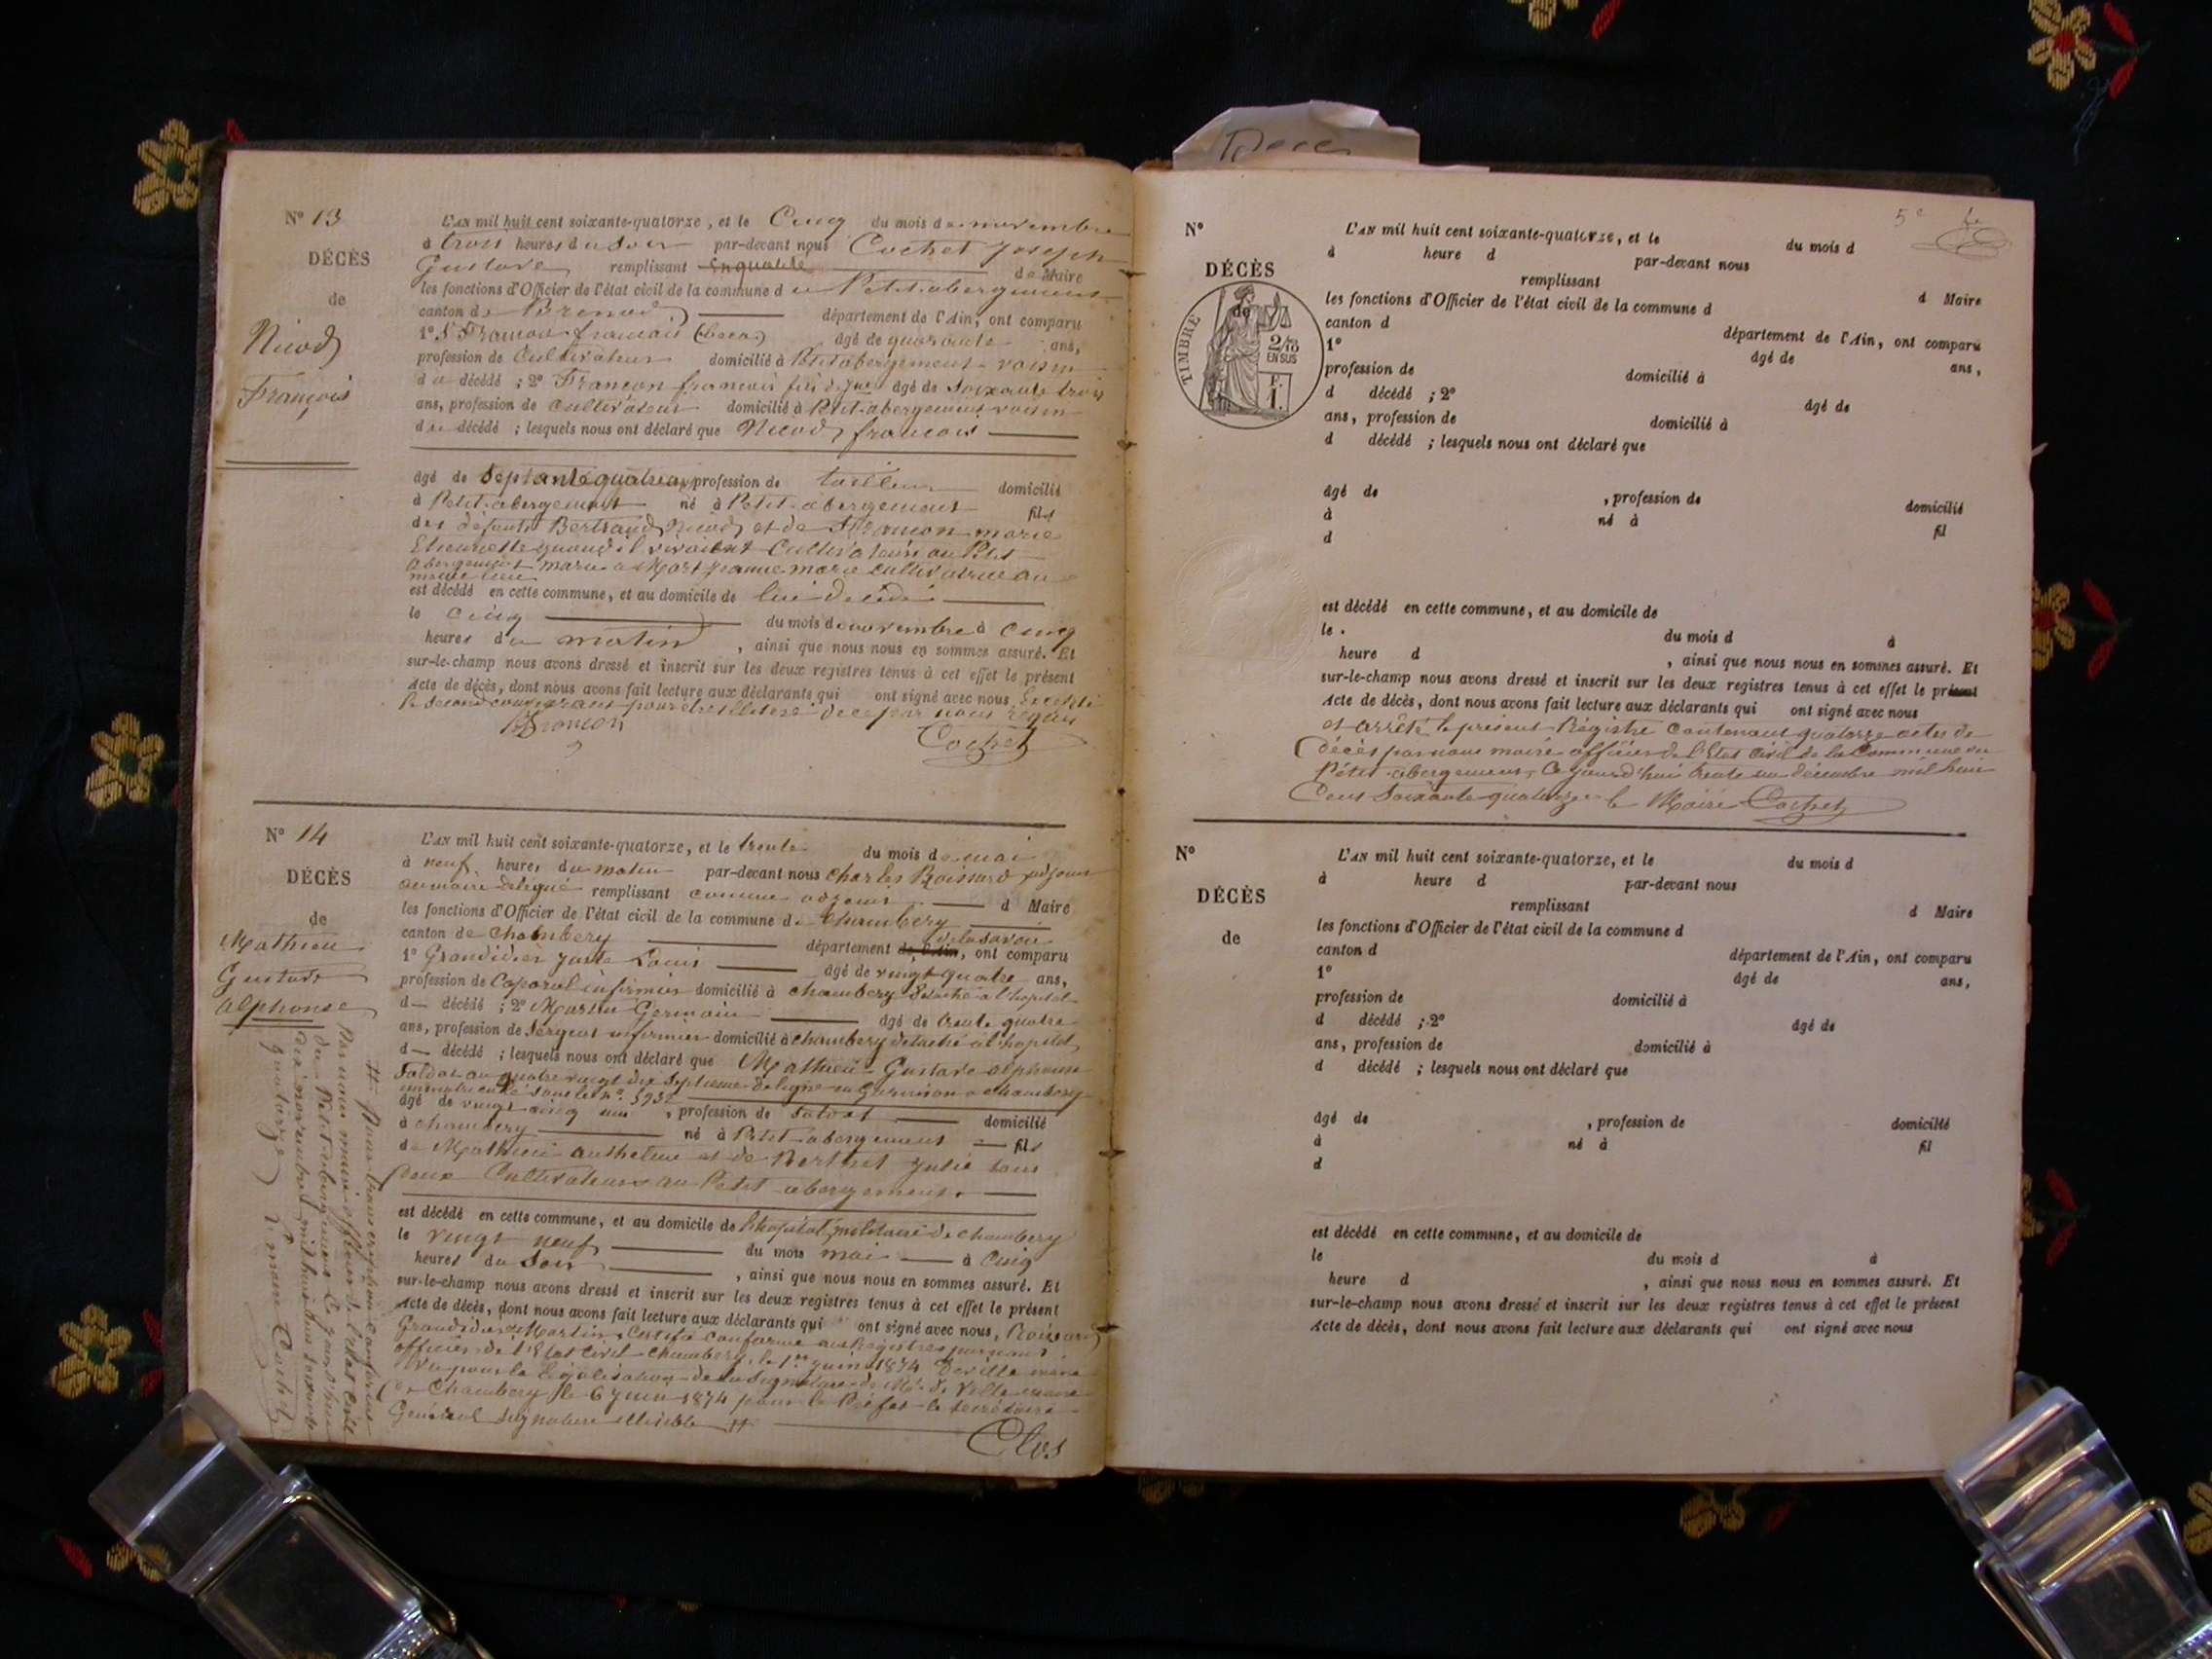 Décès
N° 13
DÉCÈS
de
Nicod
François
L'AN mil huit cent soixante-quatorze, et le Cinq du mois de novembre
à trois heures du Soir par-devant nous Cochet Joseph
Gustave remplissant en qualité de Maire
les fonctions d'Officier de l'état civil de la commune du Petit-abergement
canton de Brenod département de l'Ain, ont comparu
1° françois âgé de quarante ans,
profession de Cultivateur domicilié à Petit abergement voisin
du décédé ; 2° françois âgé de Soixante trois
ans, profession de Cultivateur domicilié à Petit-abergement voisin
du décédé ; lesquels nous ont déclaré que Nicod françois
âgé de Septante quatre ans, profession de tailleur domicilié
à Petit-abergement né à Petit-abergement fils
des défunts Bertrand Nicod et de marie
Etiennette quand il vivaient Cultivateurs au Petit
abergement marié à Jeanne marie cultivatrice au
même lieu
est décédé en cette commune, et au domicile de lui décédé
le cinq du mois de novembre à cinq
heures du matin, ainsi que nous nous en sommes assuré. Et
sur-le-champ nous avons dressé et inscrit sur les deux registres tenus à cet effet le présent
Acte de décès, dont nous avons fait lecture aux déclarants qui ont signé avec nous Excepté
le Second comparant pour être illétéré de ce par nous requis
Cochet
N° 14
DÉCÈS
de
Mathieu
Gustave
alphonse
L'AN mil huit cent soixante-quatorze, et le trente du mois de mai
à neuf heures du matin par-devant nous Charles Roissard adjoint
au maire délégué remplissant comme adjoint d Maire
les fonctions d'Officier de l'état civil de la commune de Chambery
canton de Chambery département de l'Ain, ont comparu
de la Savoie
1° Grandidier Juste Louis âgé de vingt quatre ans,
profession de Caporal infirmier domicilié à Chambery détaché à l'hopital
d décédé ; 2° Martin Germain âgé de trente quatre
ans, profession de Sergent infirmier domicilié à Chambery détaché à l'hopital
d décédé ; lesquels nous ont déclaré que Mathieu Gustave alphonse
Soldat au quatre vingt dix Septième de ligne en Garnison à Chambery
immatriculé sous le n°
âgé de vingt cinq ans, profession de Soldat domicilié
à Chambery né à Petit-abergement fils
de Mathieu anthelme et de Berthet Julie tous
deux Cultivateurs au Petit abergement.
est décédé en cette commune, et au domicile de l'hopital militaire de Chambery
le vingt neuf du mois mai à Cinq
heures du Soir, ainsi que nous nous en sommes assuré. Et
sur-le-champ nous avons dressé et inscrit sur les deux registres tenus à cet effet le présent
Acte de décès, dont nous avons fait lecture aux déclarants qui ont signé avec nous, Roissard
Grandidier Martin. Certifié conforme aux Registres par nous
officier de l'Etat Civil Chambery, le 1er juin 1874
Vu pour la légalisation de la Signature de Mr
Chambery le 6 juin 1874 pour le Préfet le Secrétaire
Général Signature illisible #
Clos
# Pour transcription conforme
Par nous maire officier de l'état civil
du Petit abergement Ce jourd'hui
dix novembre mil huit cent soixante
quatorze Le maire Cochet
N°
DÉCÈS
de
TIMBRE
2/10
EN SUS
F.
1.
5e
L'AN mil huit cent soixante-quatorze, et le du mois d
à heure d par-devant nous
remplissant d Maire
les fonctions d'Officier de l'état civil de la commune d
canton d département de l'Ain, ont comparu
1° âgé de ans,
profession de domicilié à
d décédé ; 2° âgé de
ans, profession de domicilié à
d décédé ; lesquels nous ont déclaré que
âgé de , profession de domicilié
à né à fil
d
est décédé en cette commune, et au domicile de
le du mois d à
heure d , ainsi que nous nous en sommes assuré. Et
sur-le-champ nous avons dressé et inscrit sur les deux registres tenus à cet effet le présent
Acte de décès, dont nous avons fait lecture aux déclarants qui ont signé avec nous
et arrêté le présent Régistre Contenant quatorze actes de
décès par nous maire officier de l'Etat civil de la Commune du
Petit-abergement, Ce jourd'hui trente un décembre mil huit
Cent Soixante quatorze le Maire Cochet
N°
DÉCÈS
de
L'AN mil huit cent soixante-quatorze, et le du mois d
à heure d par-devant nous
remplissant d Maire
les fonctions d'Officier de l'état civil de la commune d
canton d département de l'Ain, ont comparu
1° âgé de ans,
profession de domicilié à
d décédé ; 2° âgé de
ans, profession de domicilié à
d décédé ; lesquels nous ont déclaré que
âgé de , profession de domicilié
à né à fil
d
est décédé en cette commune, et au domicile de
le du mois d à
heure d , ainsi que nous nous en sommes assuré. Et
sur-le-champ nous avons dressé et inscrit sur les deux registres tenus à cet effet le présent
Acte de décès, dont nous avons fait lecture aux déclarants qui ont signé avec nous